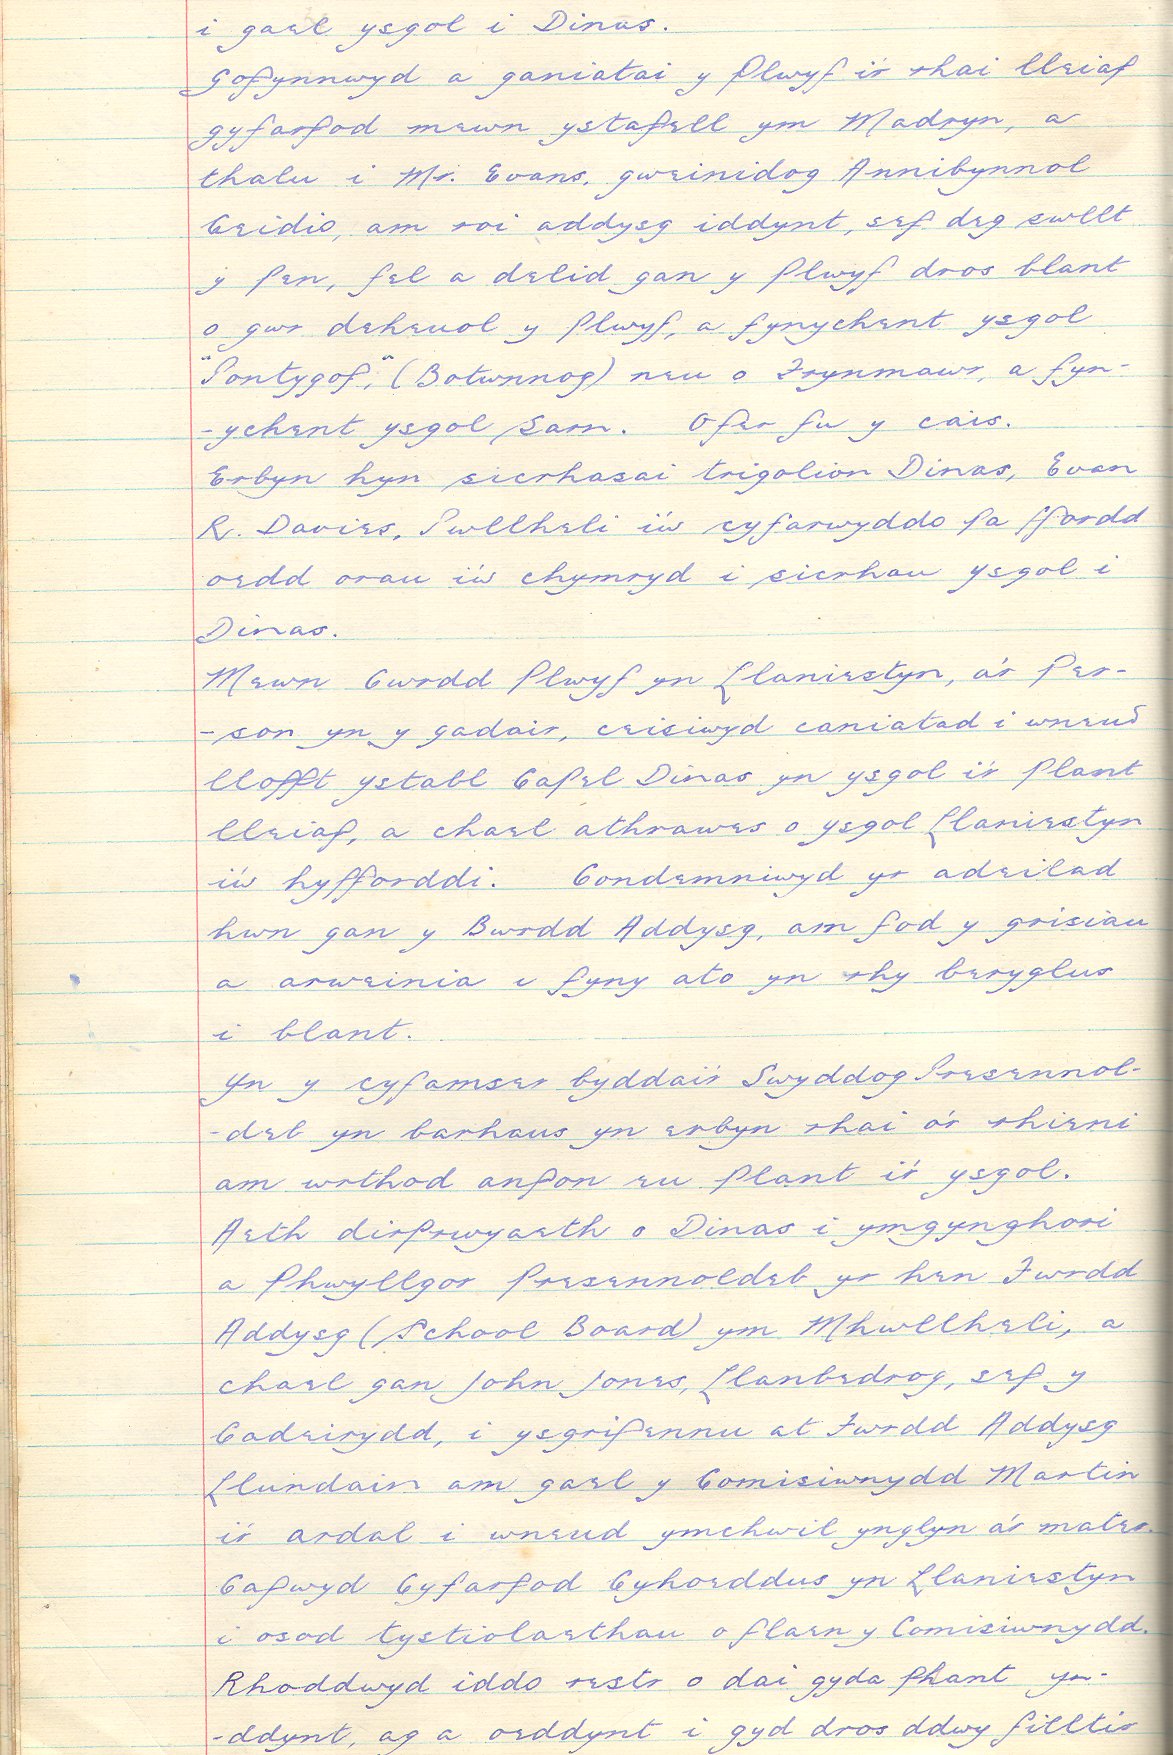 i gael ysgol i Dinas.
Gofynnwyd a ganiatai y plwyf i'r rhai lleiaf
gyfarfod mewn ystafell ym Madryn, a
thalu i Mr. Evans, gweinidog Annibynnol
Ceidio, am roi addysg iddynt, sef deg swllt
y pen, fel a delid gan y plwyf dros blant
o gwr deheuol y plwyf, a fynychent ysgol
"Pontygof," (Botwnnog) neu o Frynmawr, a fyn-
-ychent ysgol Sarn. Ofer fu y cais.
Erbyn hyn sicrhasai trigolion Dinas, Evan
R. Davies, Pwllheli i'w cyfarwyddo pa ffordd
oedd orau i'w chymryd i sicrhau ysgol i
Dinas.
Mewn Cwrdd Plwyf yn Llaniestyn, a'r Per-
-son yn y gadair, ceisiwyd caniatad i wneud
llofft ystabl Capel Dinas yn ysgol i'r plant
lleiaf, a chael athrawes o ysgol Llaniestyn
i'w hyfforddi. Condemniwyd yr adeilad
hwn gan y Bwrdd Addysg, am fod y grisiau
a arweinia i fyny ato yn rhy beryglus
i blant.
Yn y cyfamser byddai'r Swyddog Presennol-
-deb yn barhaus yn erbyn rhai o'r rhieni
am wrthod anfon eu plant i'r ysgol.
Aeth dirprwyaeth o Dinas i ymgynghori
a Phwyllgor Presennoldeb yr hen Fwrdd
Addysg (School Board) ym Mhwllheli, a
chael gan John Jones, Llanbedrog, sef y
Cadeirydd, i ysgrifennu at Fwrdd Addysg
Llundain am gael y Comisiwnydd Martin
i'r ardal i wneud ymchwil ynglyn a'r mater.
Cafwyd Cyfarfod Cyhoeddus yn Llaniestyn
i osod tystiolaethau o flaen y Comisiwnydd.
Rhoddwyd iddo restr o dai gyda phant yn-
-ddynt, ag a oeddynt i gyd dros ddwy filltir